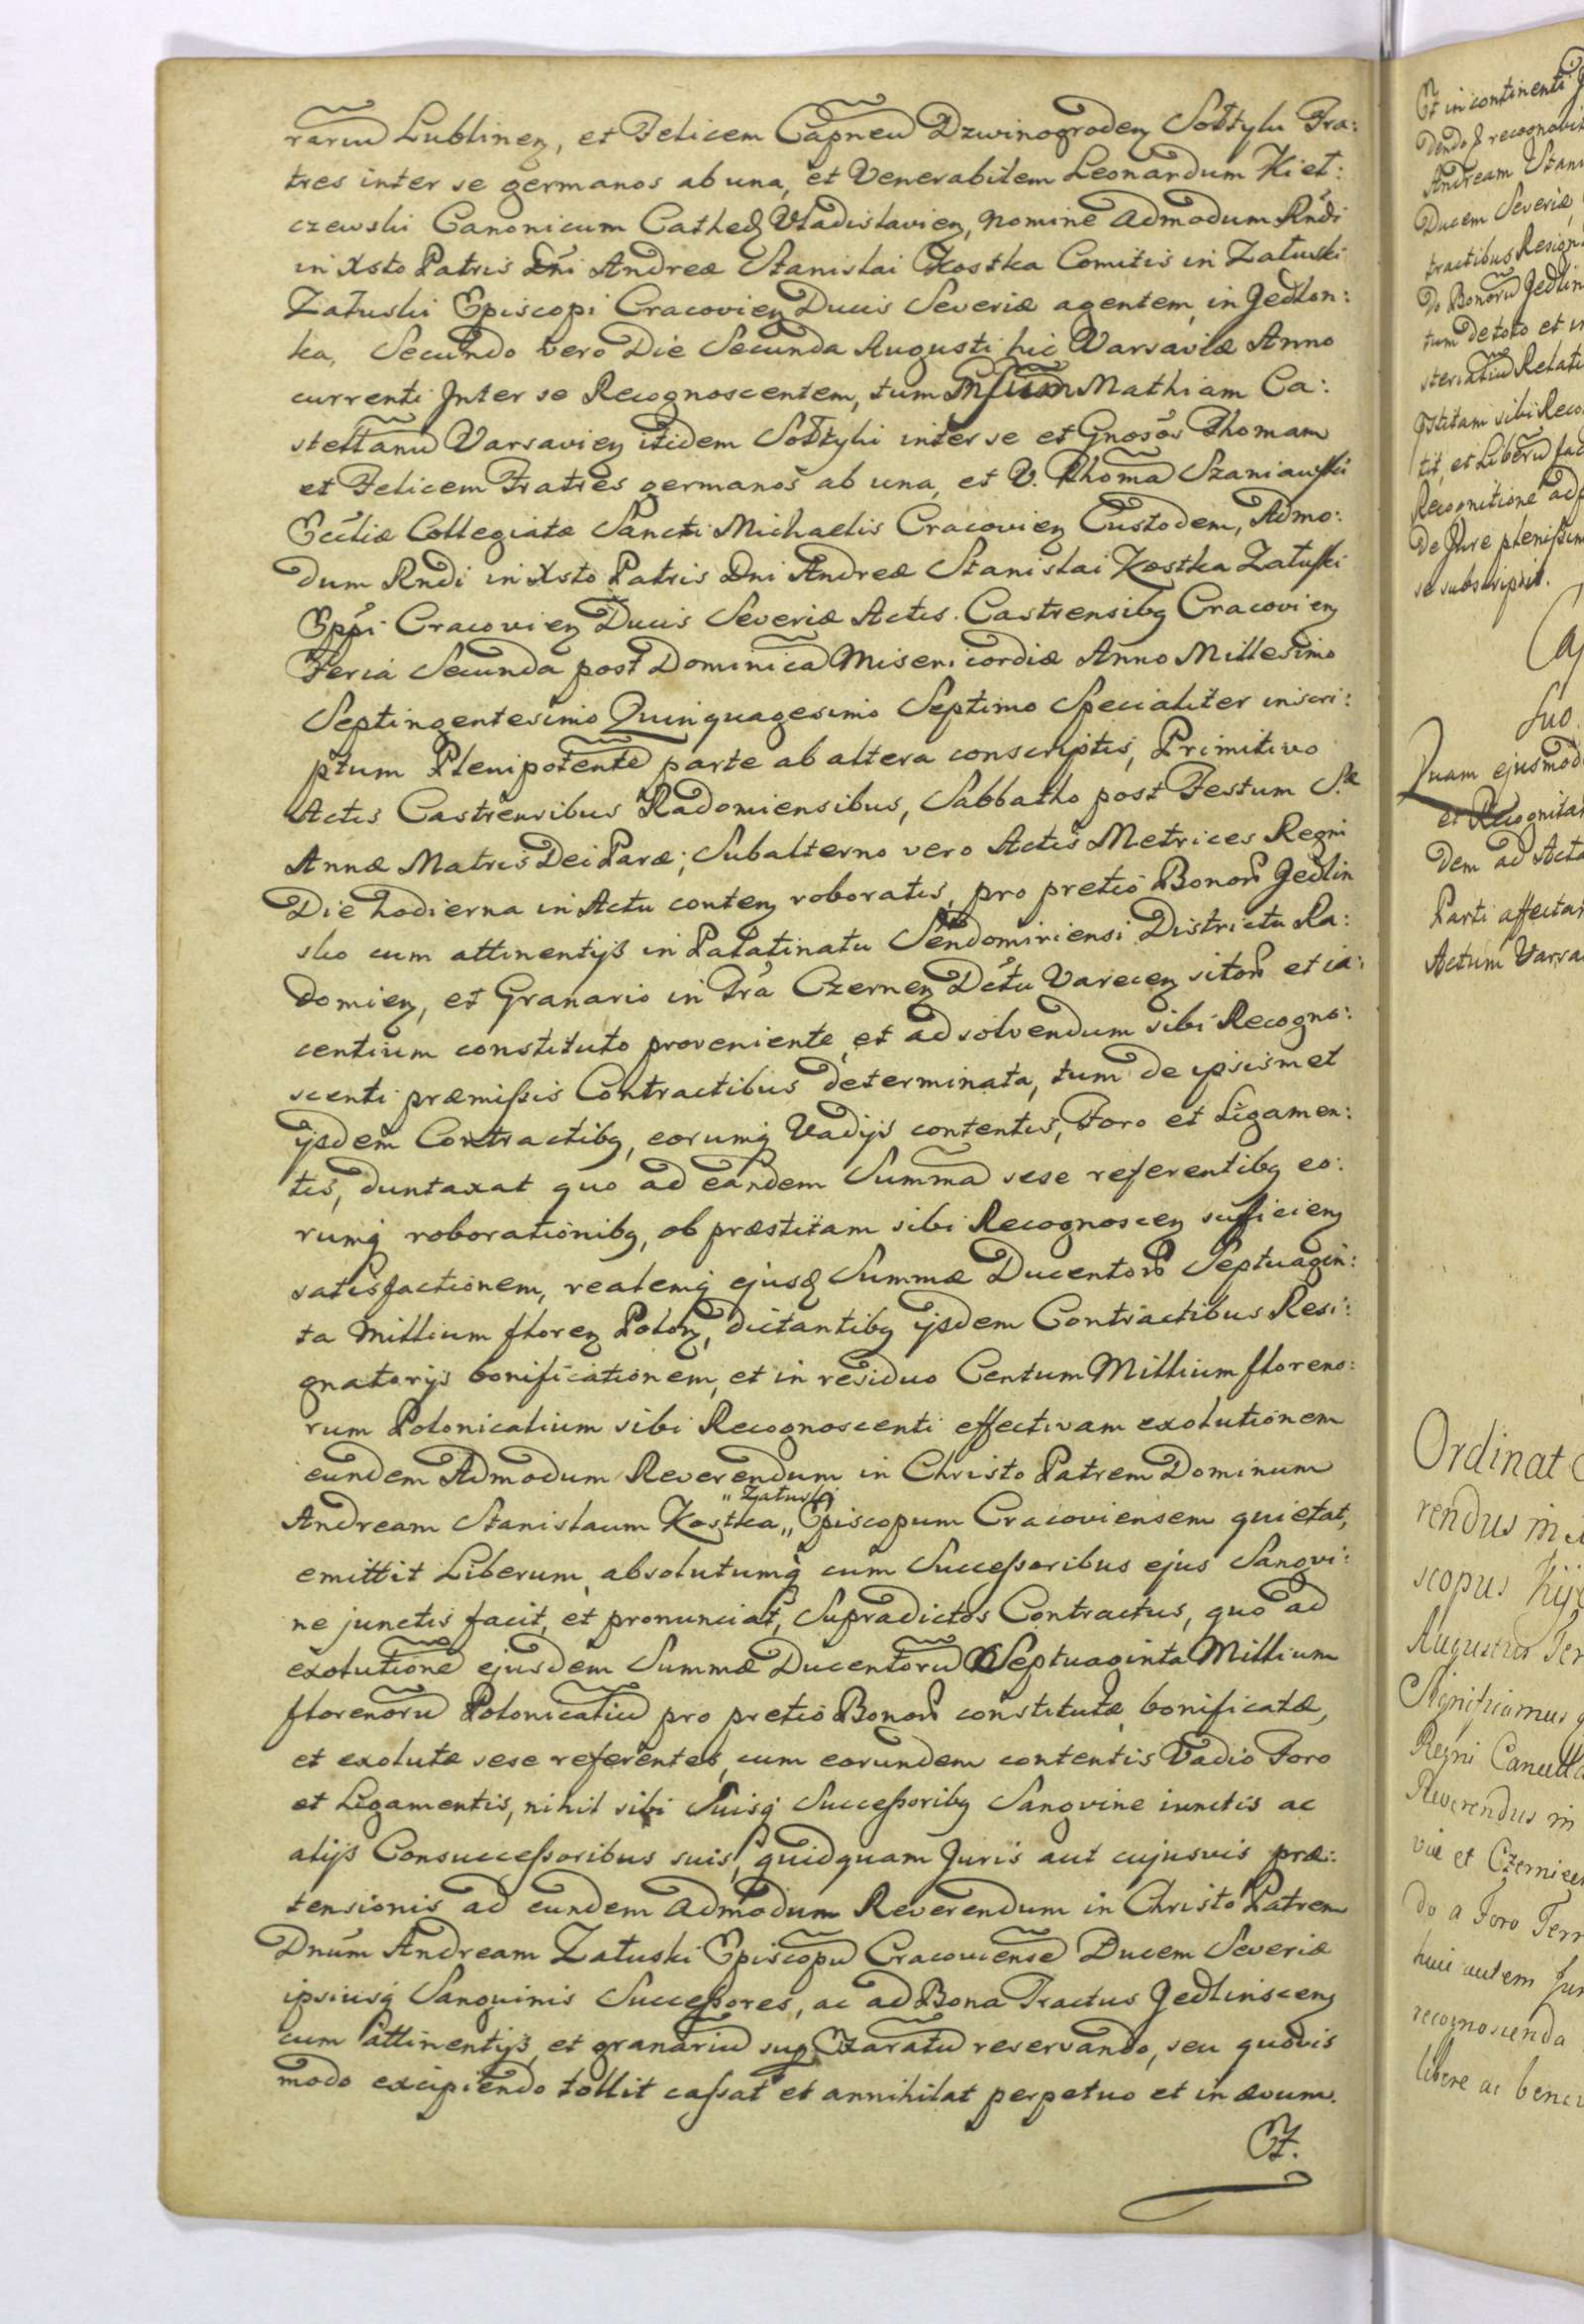 rariu Lublinen, et Felicem Capneu Dzwinogroden Sołtyku Fra:
tres inter se germanos ab una, et Venerabilem Leonardum Kieł:
czewski Canonicum Cathed Vladislavien, nomine admodum Rndi
in Xsto Patris Dni Andreæ Stanislai Kostka Comitis in Załuski
Załuski Episcopi Cracovien Ducis Severiæ agentem, in Jedlon:
ka, Secundo vero Die Secunda Augusti hic Varsaviæ Anno
currenti Inter se Recognoscentem, tum Mathiam Ca:
stellanu Varsavien itidem Sołtyki inter se et Gnosos Thomam
et Felicem Fratres germanos ab una, et V. Thoma Szaniawski
Eccliæ Collegiatæ Sancti Michaelis Cracovien Custodem, Admo:
dum Rndi in Xsto Patris Dni Andreæ Stanislai Kostka Załuski
Eppi Cracovien Ducis Severiæ Actis Castrensibq Cracovien
Feria Secunda post Dominica Misericordiæ Anno Millesimo
Septingentesimo Quinquagesimo Septimo Specialiter inscri:
ptum Plenipotente parte ab altera conscriptis, Primitivo
Actis Castrensibus Radomiensibus, Sabbatho post Festum S.æ
Annæ Matris Dei Paræ; Subalterno vero Actis Metrices Regni
Die hodierna in Actu conten roboratis, pro pretio Bonor Jedlin
sko cum attinentijs in Palatinatu Sendomiriensi Districtu Ra:
domien, et Granario in Tra Czernen Dctu Varecen sitor et ia:
centium constituto proveniente, et ad solvendum sibi Recogno:
scenti præmissis Contractibus determinata, tum de ipsismet
ijsdem Contractibq, eorumq Vadijs contentis, Foro et Ligamen:
tis, duntaxat quo ad eandem Summa sese referentibq eo:
rumq roborationibq, ob præstitam sibi Recognoscen sufficien
satisfactionem, realemq ejusd Summæ Ducentor Septuagin:
ta Millium floren Polon, dictantibq ijsdem Contractibus Resi:
gnatorijs bonificationem, et in residuo Centum Millium floreno:
rum Polonicalium sibi Recognoscenti effectivam exolutionem
eundem Admodum Reverendum in Christo Patrem Dominum
Andream Stanislaum Kostka „ Załuski „ Episcopum Cracoviensem quietat,
emittit Liberum, absolutumq cum Successoribus ejus Sangvi:
ne junctis facit, et pronunciat, Supradictos Contractus, quo ad
exolutione ejusdem Summæ Ducentoru Septuaginta Millium
florenoru Polonicaliu pro pretio Bonor constitutæ, bonificatæ,
et exolutæ sese referentes, cum eorundem contentis Vadio Foro
et Ligamentis, nihil sibi Suisq Successoribq Sangvine iunctis ac
alijs Consuccessoribus suis, quidquam Juris aut cujusvis præ:
tensionis ad eundem Admodum Reverendum in Christo Patrem
Dnum Andream Załuski Episcopu Cracoviense Ducem Severiæ
ipsiusq Sanguinis Successores, ac ad Bona Tractus Jedlinscen
cum attinentijs, et granariu sup Czaratu reservando, seu quovis
modo excipiendo tollit cassat et annihilat perpetuo et in ævum.
Et.
Et in continenti
dendo recognovit
Andream Stani
Ducem Severiæ
tractibus Resign
Do Bonoru Jedlin
tum de toto et in
Relati
sibi Reco
tit, et Liberu fac
Recognitione ad
de Jure plenissim
se subscripsit.
Quam ejusmodi
et Recognita
dem ad Acta
Parti affectan
Actum Varsa
Ordinat
rendus in
scopus Kij
Augustus Ter
Significamus
Regni Cancella
Reverendus in
viæ et Czernie
do a Foro Terr
huic autem Jur
recognoscenda
libere ac benev